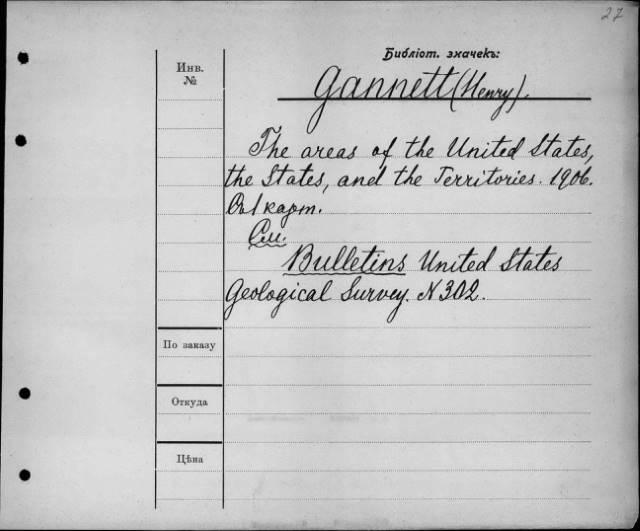 27
Библіот. значекъ:
Инв.
№
Gannett (Henry).
The areas of the United States,
the States, and the Territories. 1906.
Съ 1 карт.
См.
Bulletins United States
Geological Survey. N 302.
По заказу
Откуда
Цѣна